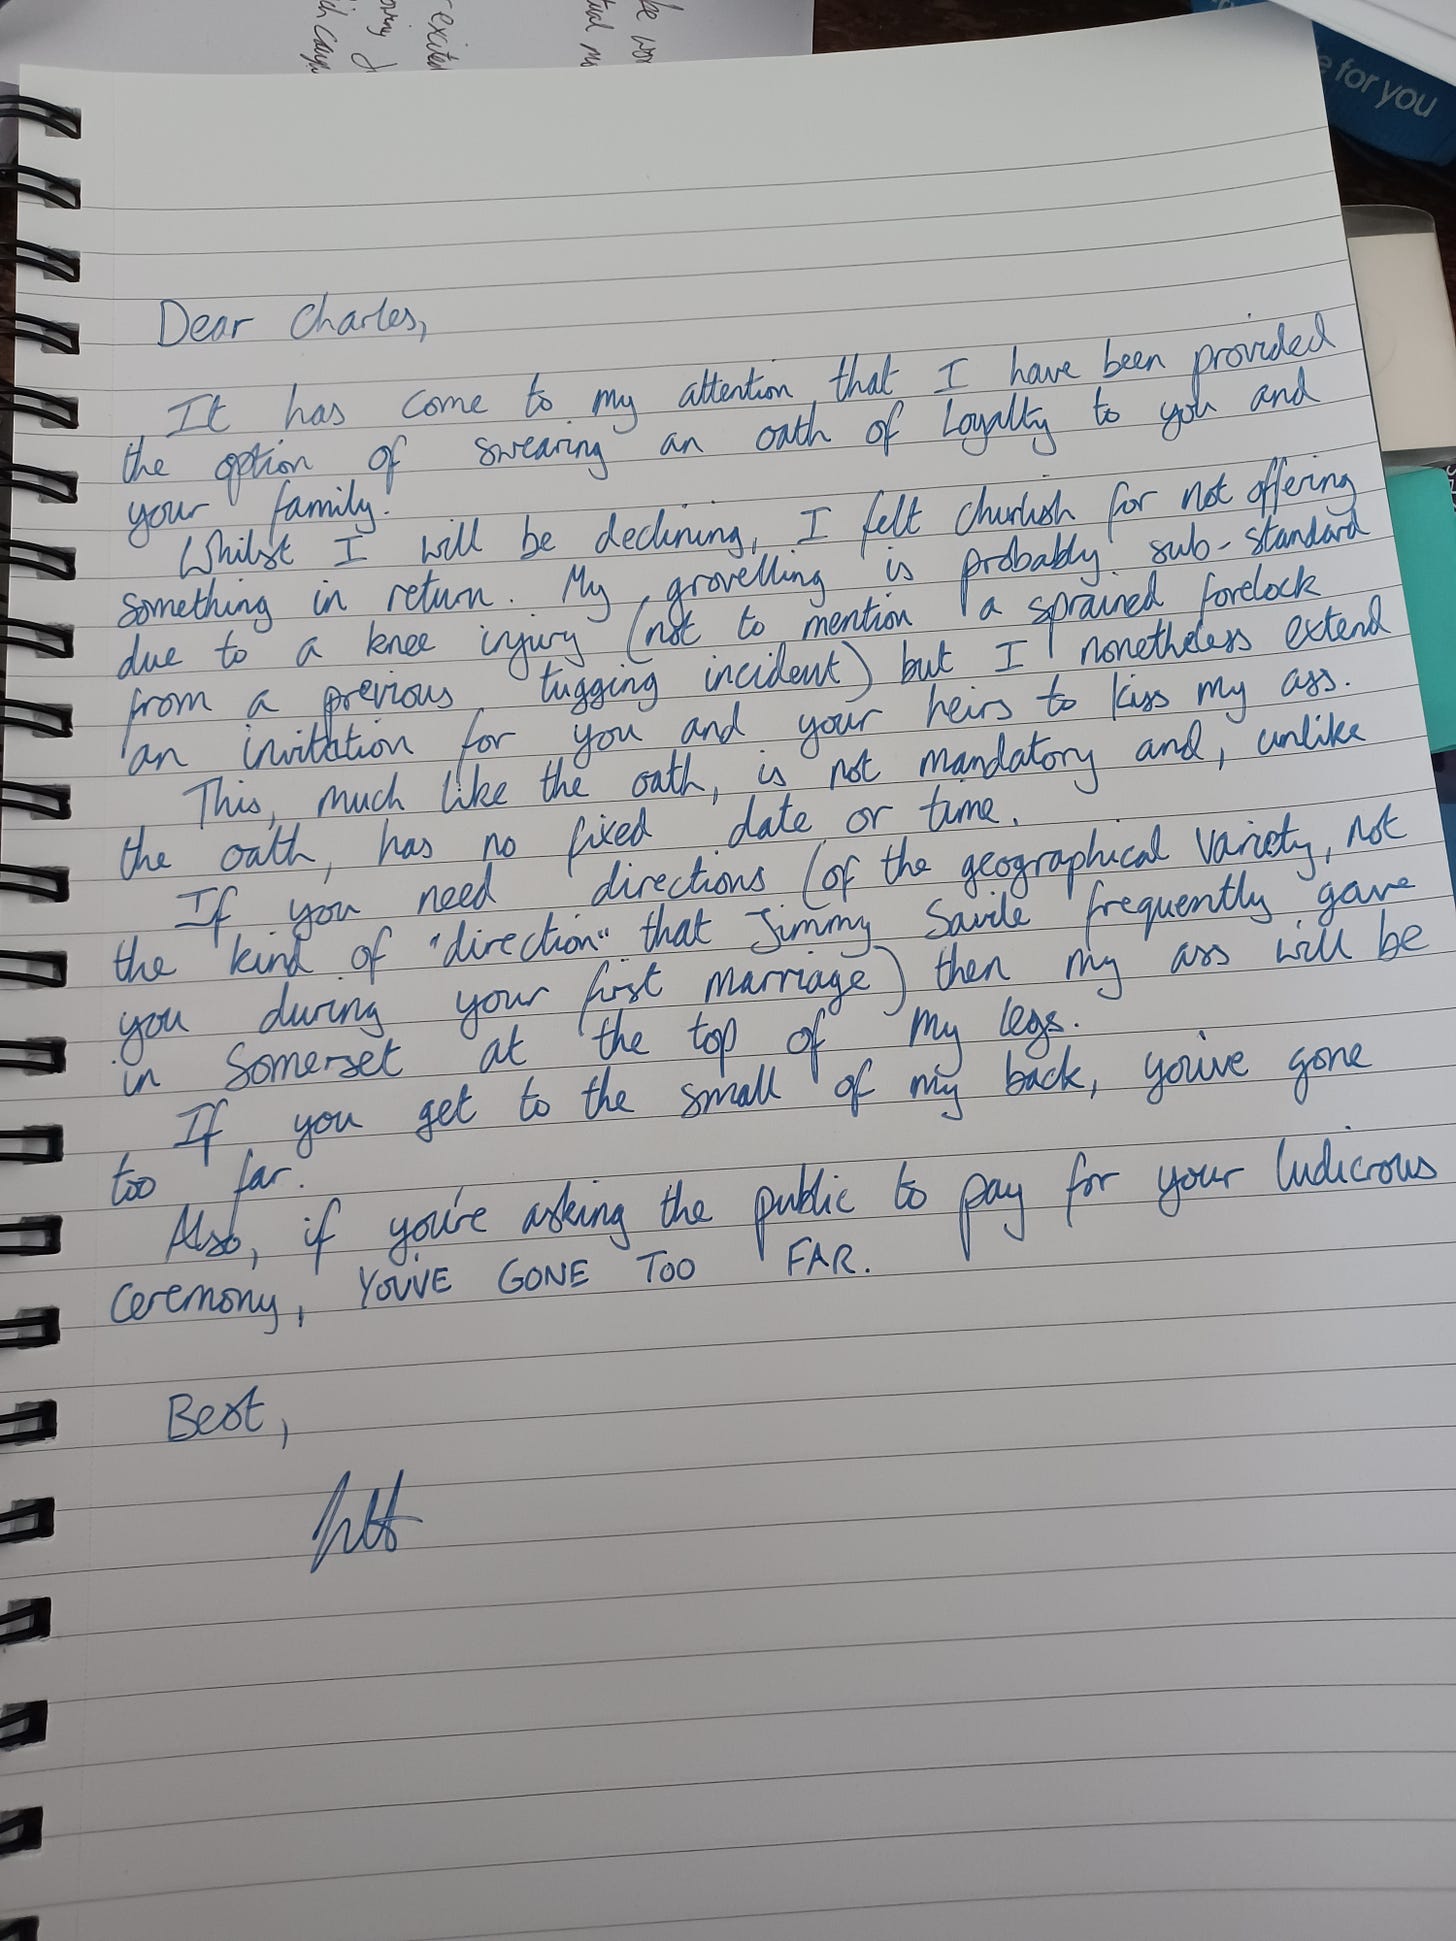 be
excited
for you
Dear Charles,
It has come to my attention that I have been provided
the option of swearing an oath of loyalty to you and
your family.
Whilst I will be declining, I felt churlish for not offering
something in return. My grovelling is probably sub-standard
due to a knee injury (not to mention a sprained forelock
from a previous tugging incident) but I nonetheless extend
an invitation for you and your heirs to kiss my ass.
This, much like the oath, is not mandatory and, unlike
the oath, has no fixed date or time.
If you need directions (of the geographical variety, not
the kind of "direction" that Jimmy Savile frequently gave
you during your first marriage) then my ass will be
in Somerset at the top of my legs.
If you get to the small of my back, you've gone
too far.
Also, if you're asking the public to pay for your ludicrous
ceremony, YOU'VE GONE TOO FAR.
Best,